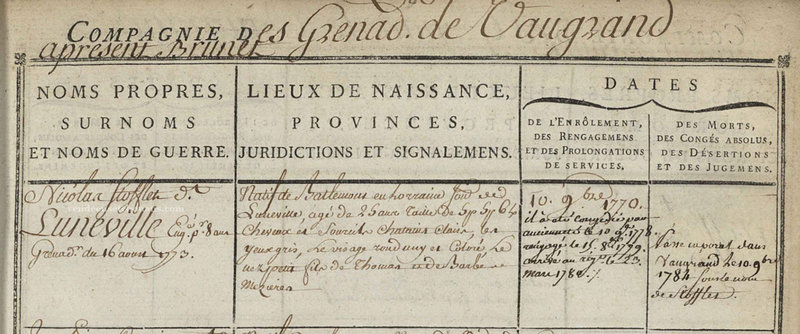 COMPAGNIE Des Grenad. de Vaugrand
apresent Brunet
NOMS PROPRES,
SURNOMS
ET NOMS DE GUERRE.
LIEUX DE NAISSANCE,
PROVINCES,
JURIDICTIONS ET SIGNALEMENS.
DATES
DE L'ENRÔLEMENT,
DES RENGAGEMENS
ET DES PROLONGATIONS
DE SERVICES.
DES MORTS,
DES CONGÉS ABSOLUS,
DES DÉSERTIONS
ET DES JUGEMENS.
Nicolas Stofflet dt
Luneville Engé pr 8 ans
Grenadr du 16 aoust 1773.
Natif de Batlemons en Lorraine Jond de
Luneville, agé de 25 ans Taille de 5p 5p 6l
Cheveux et Sourcils Chatains Clairs, les
yeux gris, Le visage rond uny et Coloré Le
nez petit fils de Thomas et de Barbe
Meziere
10. 9bre 1770.
il a été congédié par
ancienneté le 10 9bre 1778.
rengagé le 15. 8bre 1779.
arrivé au regt le 23.
mars 1782.
Passé caporal dans
Vaugrand le 10. 9bre
1784 sous le nom
de Stofflet